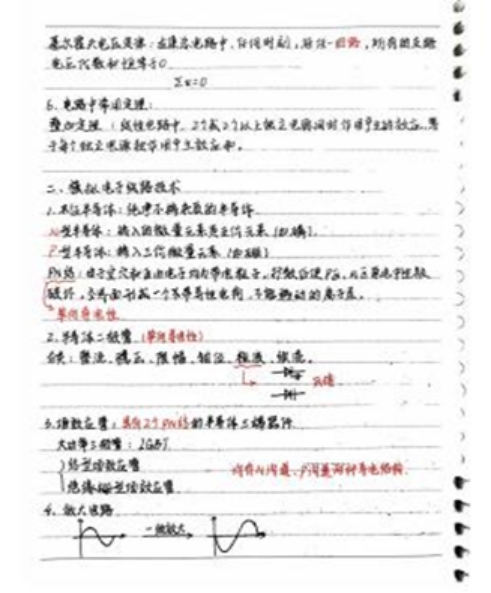 基尔霍夫电压定律：在集总电路中，任何时刻，沿任一回路，所有的支路
电压代数和恒等于0
Σu=0
6. 电路中常用定理：
叠加定理：线性电路中，2个或2个以上独立电源同时作用产生的效应，等
于每个独立电源单独作用产生效应和。
二、模拟电子线路技术
1. 本征半导体：纯净不掺杂质的半导体
N型半导体：掺入的微量元素为五价元素（如磷）.
P型半导体：掺入三价微量元素（如硼）
PN结：由于空穴和自由电子均为带电粒子，扩散后使P区、N区原电中性被
破坏，交界面形成一个不能移动的离子区。
单向导电性
2. 半导体二极管（单向导电性）
作用：整流、稳压、限幅、钳位、
PN结
3. 场效应管：具有2个PN结的半导体三端器件
大功率三极管：IGBT
结型场效应管
绝缘栅型场效应管
均有N沟道、P沟道两种导电结构
4. 放大电路
一级放大